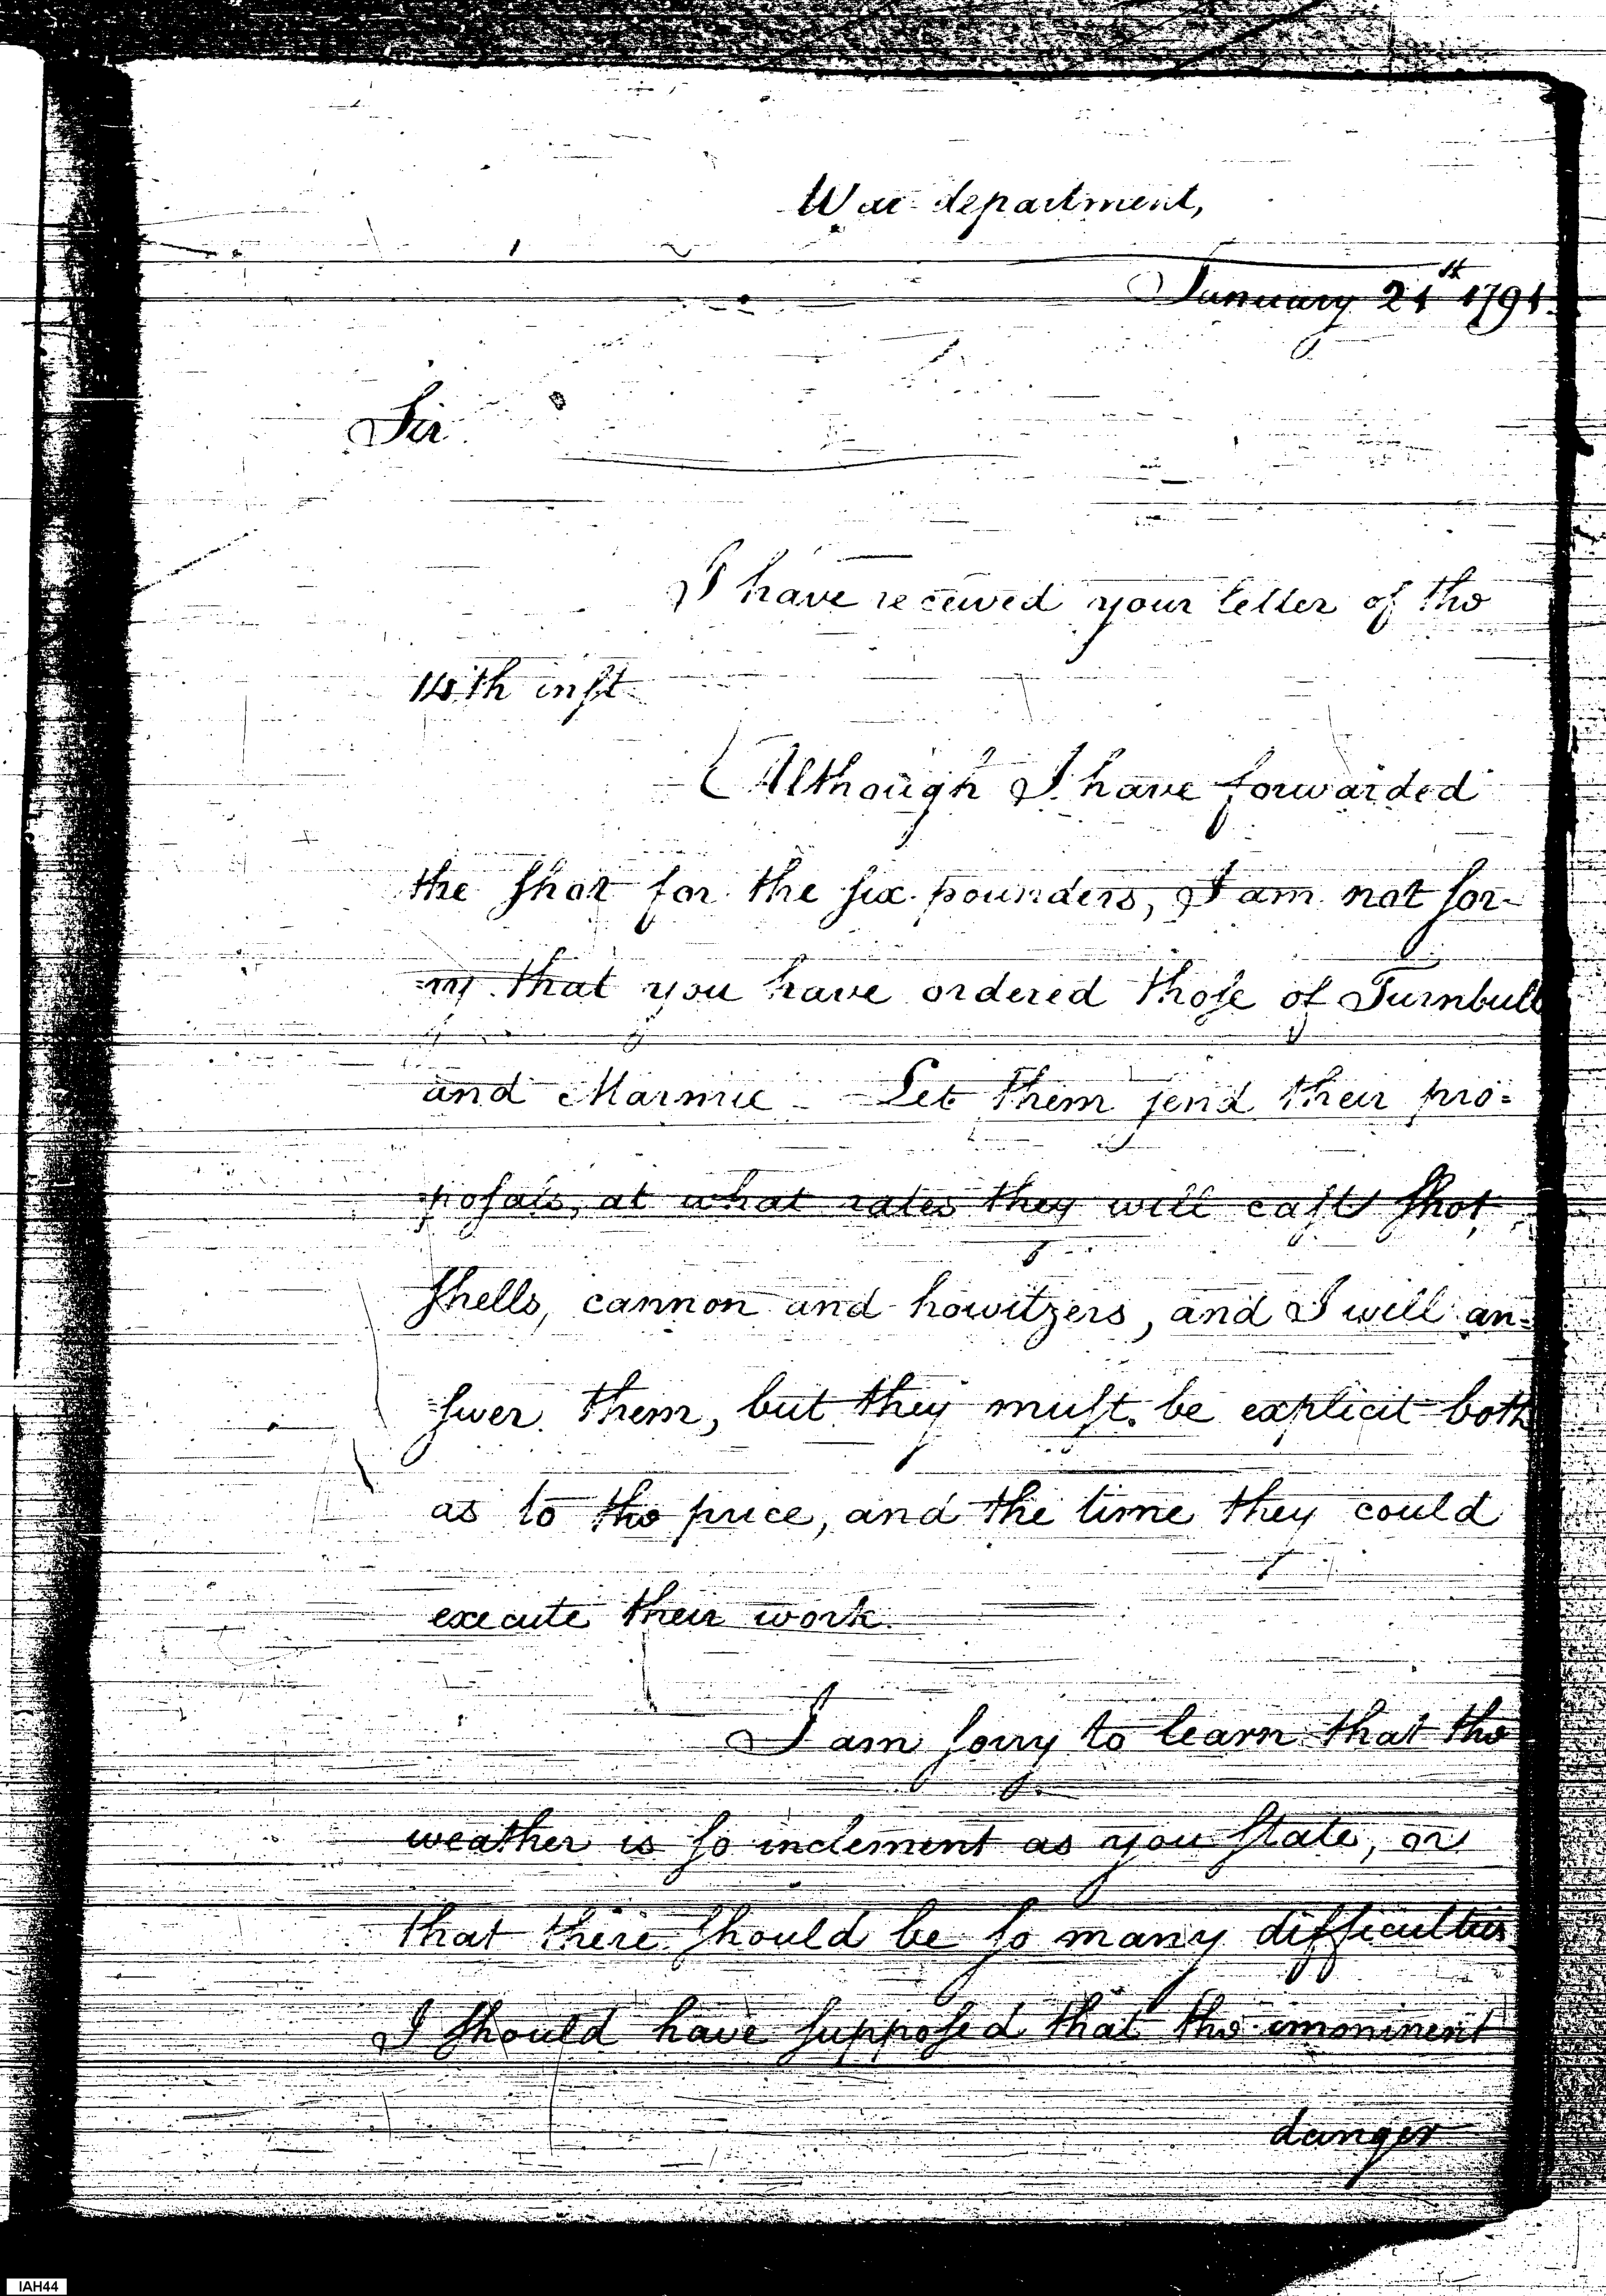 War department,
January 21st 1791.
Sir
I have received your letter of the
14th inst
Although I have forwarded
the shot for the six pounders, I am not sor-
=ry that you have ordered those of Turnbull
and Marmie - Let them send their pro=
=posals, at what rates they will cast shot
shells, cannon and howitzers, and I will an=
=swer them, but they must be explicit both
as to the price, and the time they could
execute their work.
I am sorry to learn that the
weather is so inclement as you state, or
that there should be so many difficulties
I should have supposed that the imminent
danger
IAH44